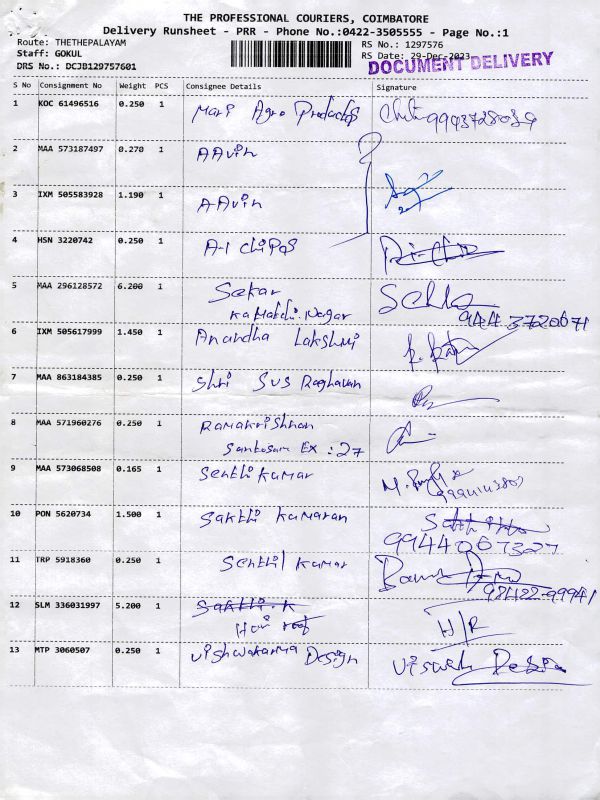 THE PROFESSIONAL COURIERS, COIMBATORE
Delivery Runsheet - PRR - Phone No.:0422-3505555 - Page No.:1
Route: THETHEPALAYAM RS No.: 1297576
Staff: GOKUL RS Date: 29-Dec-2023
DRS No.: DCJB129757601 DOCUMENT DELIVERY
S No Consignment No Weight PCS Consignee Details Signature
1 KOC 61496516 0.250 1 Mari Agro Products 9943728039
2 MAA 573187497 0.270 1 AAvin
3 IXM 505583928 1.190 1 AAvin
4 HSN 3220742 0.250 1 A-1 chips
5 MAA 296128572 6.200 1 Sekar
Kamatchi Nagar 944 3720671
6 IXM 505617999 1.450 1 Anandha Lakshmi
7 MAA 863184385 0.250 1 Shri SVS Raghavan
8 MAA 571960276 0.250 1 Ramakrishnan
Ex : 27
9 MAA 573068508 0.165 1 Senthi Kumar
10 PON 5620734 1.500 1 Sakthi Kumaran
9944067327
11 TRP 5918360 0.250 1 Senthil Kumar
98422-99941
12 SLM 336031997 5.200 1 Sakthi.K H/R
13 MTP 3060507 0.250 1 Vishwakarma Design